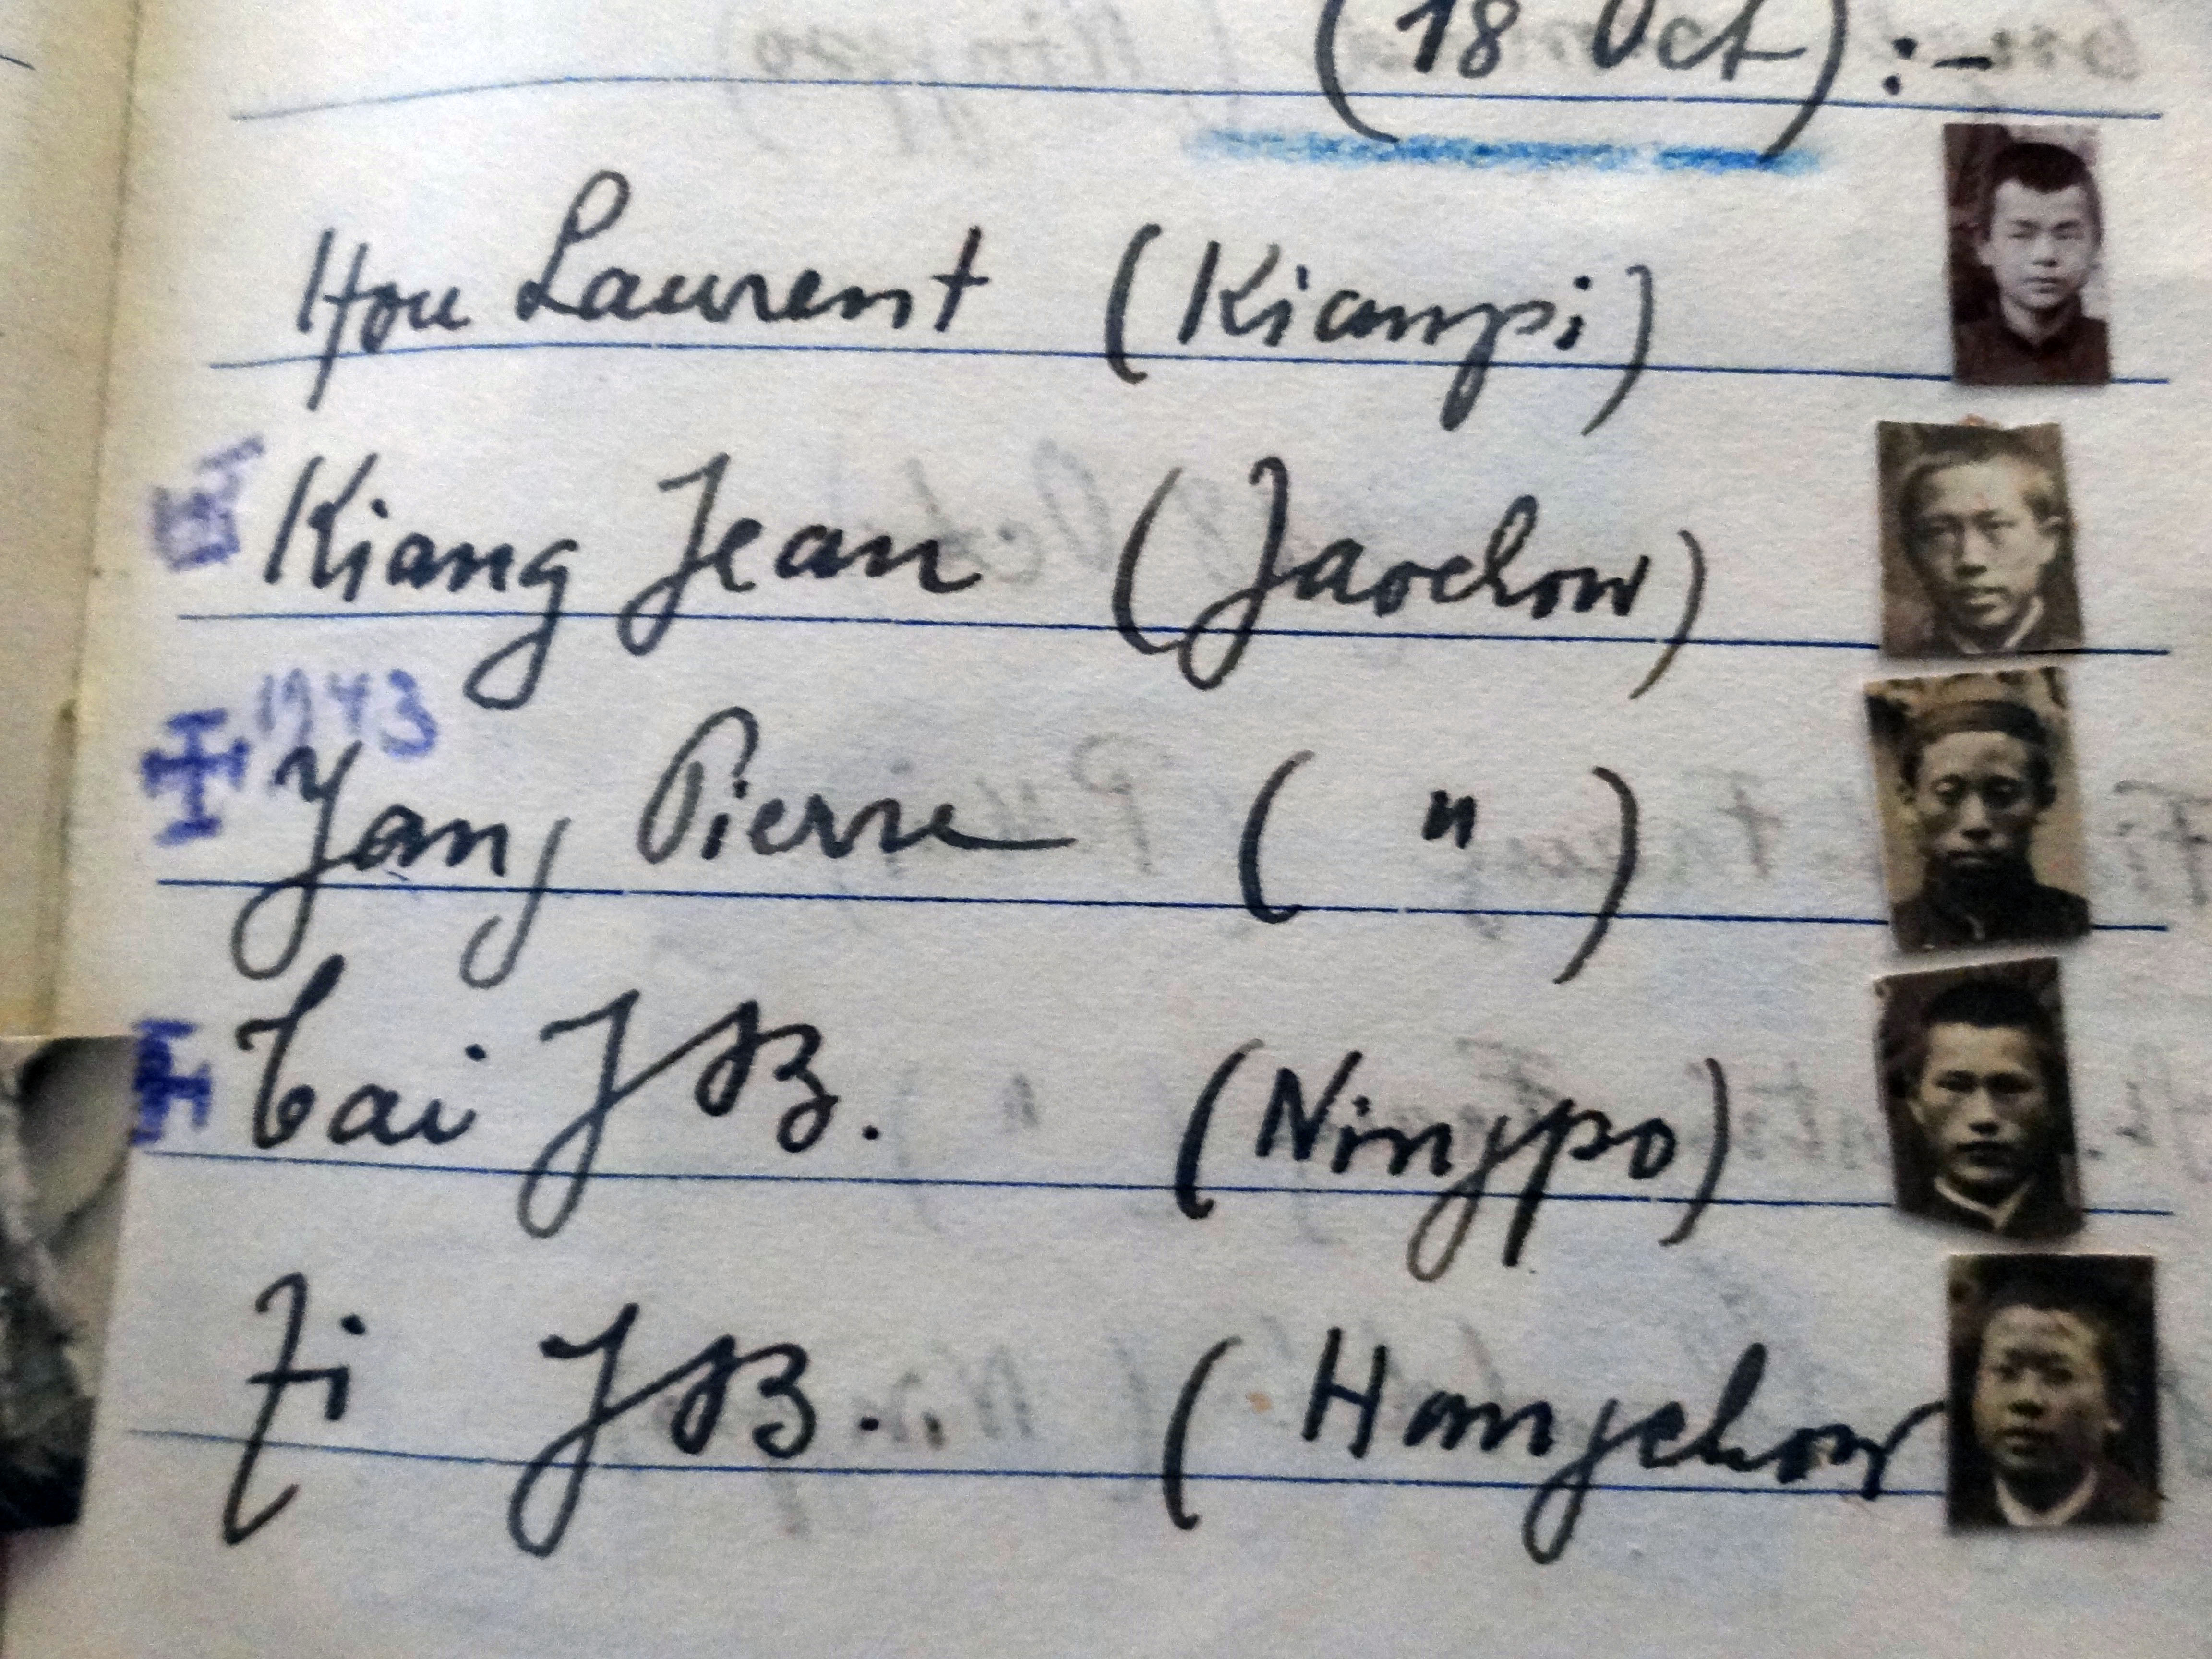 (18 Oct) :-
Hou Laurent (Kianpi)
Kiang Jean (Jaochow)
1943
Yang Pierre ( " )
Tai JB. (Ningpo)
Fi JB. (Hangchow